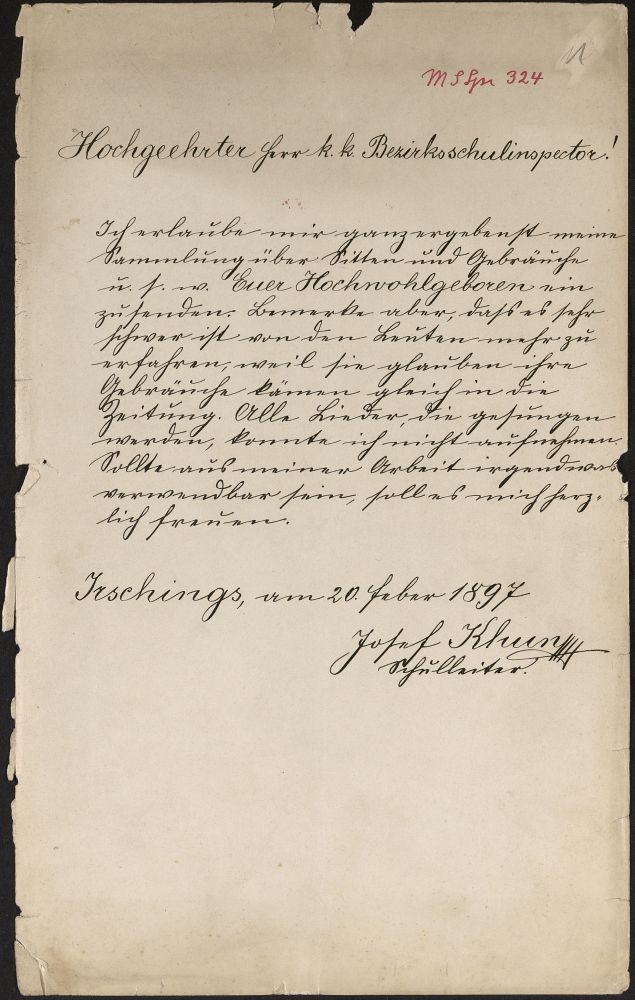 MS Spr 324
Hochgeehrter Herr k. k. Bezirksschulinspector!
Ich erlaube mir ganz ergebenst meine
Sammlung über Sitten und Gebräuche
u. s. w. Euer Hochwohlgeboren ein
zusenden. Bemerke aber, dass es sehr
schwer ist von den Leuten mehr zu
erfahren, weil sie glauben ihre
Gebräuche kämen gleich in die
Zeitung. Alle Lieder, die gesungen
werden, konnte ich nicht aufnehmen.
Sollte aus meiner Arbeit irgend was
verwendbar sein, soll es mich herz-
lich freuen.
Irschings, am 20. Feber 1897
Josef Khun
Schulleiter.